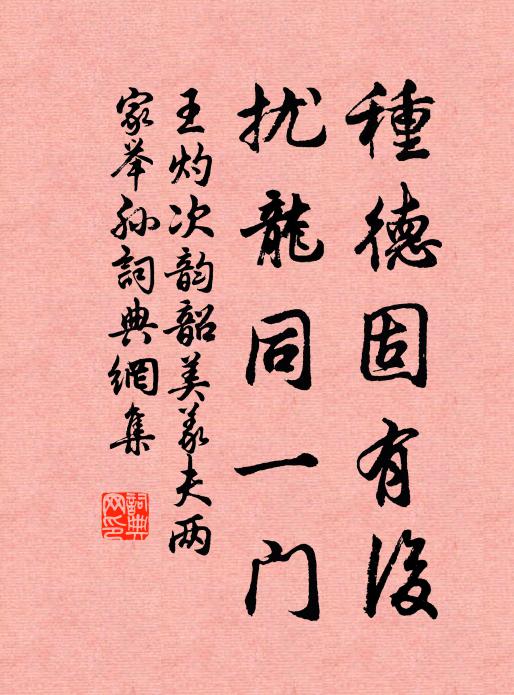 種德固有後
扰龍同一门
王灼次韵韶美義夫两
家举孙詞典網集
詞典网印